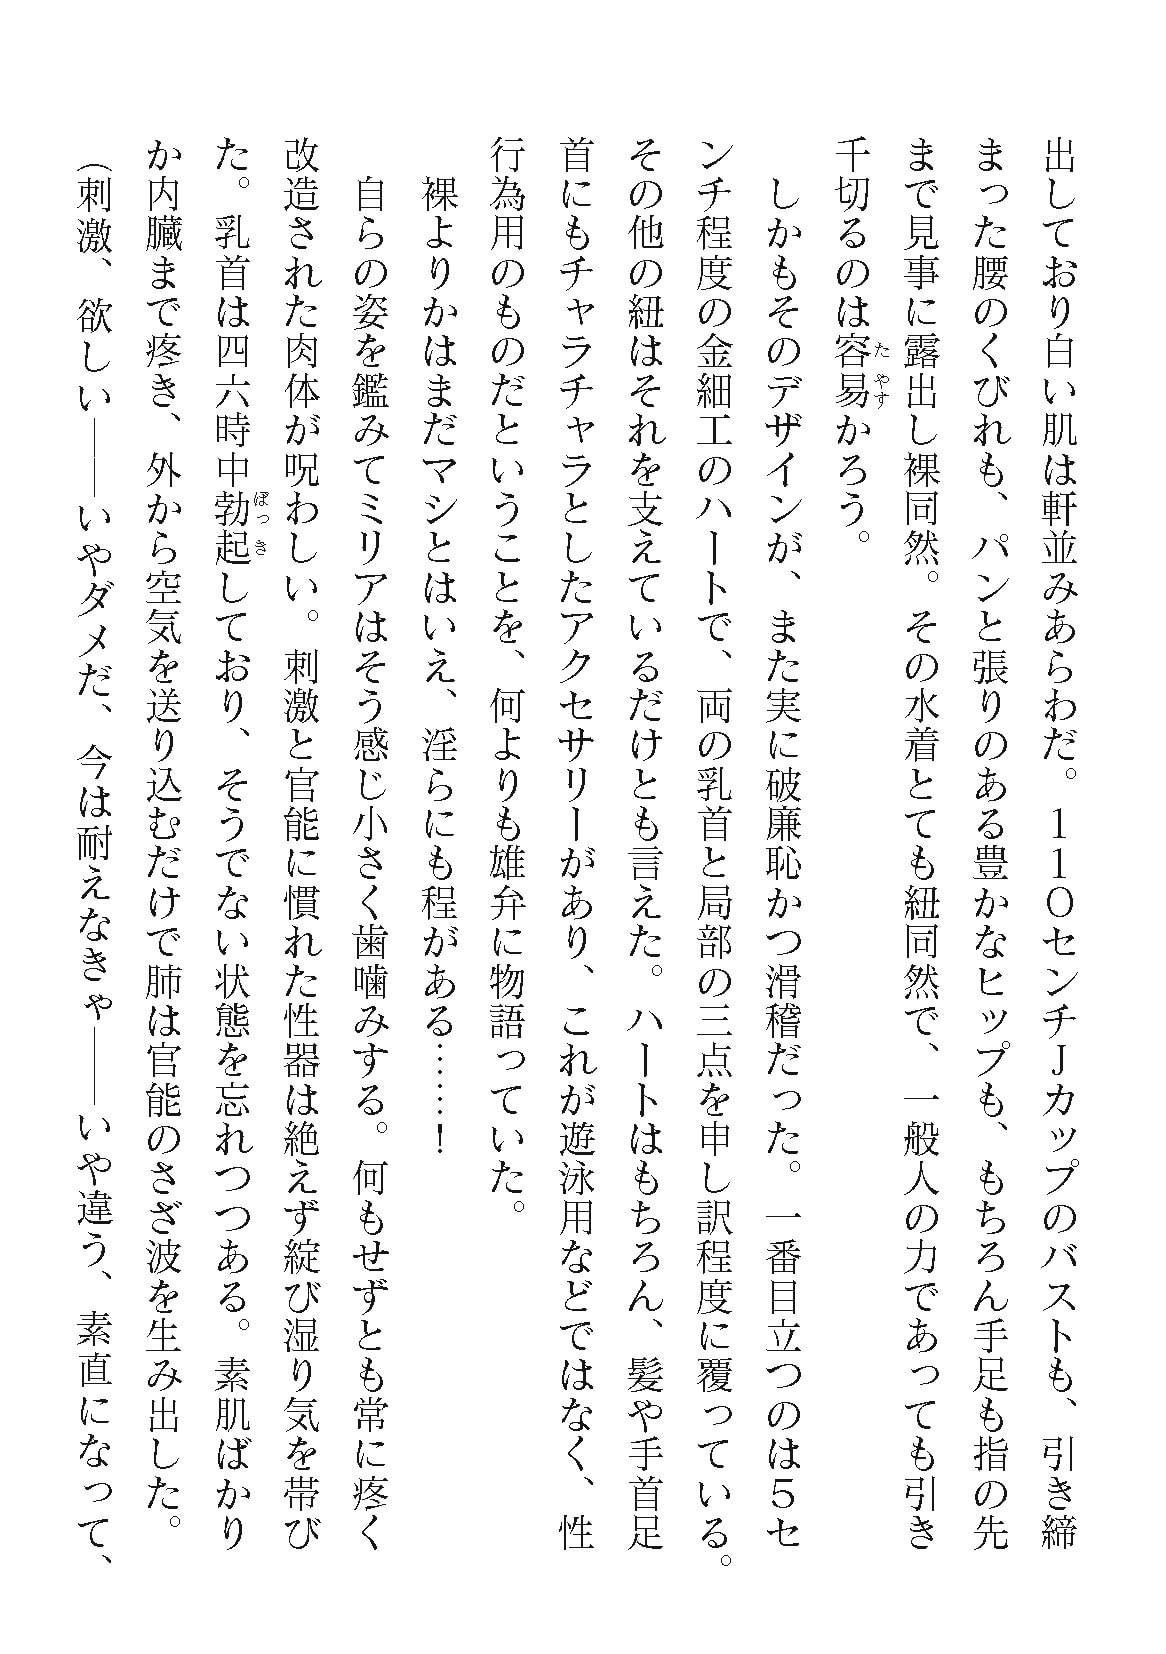 出しており白い肌は軒並みあらわだ。１１０センチＪカップのバストも、引き締
まった腰のくびれも、パンと張りのある豊かなヒップも、もちろん手足も指の先
まで見事に露出し裸同然。その水着とても紐同然で、一般人の力であっても引き
千切るのは容易かろう。
しかもそのデザインが、また実に破廉恥かつ滑稽だった。一番目立つのは５セ
ンチ程度の金細工のハートで、両の乳首と局部の三点を申し訳程度に覆っている。
その他の紐はそれを支えているだけとも言えた。ハートはもちろん、髪や手首足
首にもチャラチャラとしたアクセサリーがあり、これが遊泳用などではなく、性
行為用のものだということを、何よりも雄弁に物語っていた。
裸よりかはまだマシとはいえ、淫らにも程がある……！
自らの姿を鑑みてミリアはそう感じ小さく歯噛みする。何もせずとも常に疼く
改造された肉体が呪わしい。刺激と官能に慣れた性器は絶えず綻び湿り気を帯び
た。乳首は四六時中勃起しており、そうでない状態を忘れつつある。素肌ばかり
か内臓まで疼き、外から空気を送り込むだけで肺は官能のさざ波を生み出した。
（刺激、欲しい――いやダメだ、今は耐えなきゃ――いや違う、素直になって、